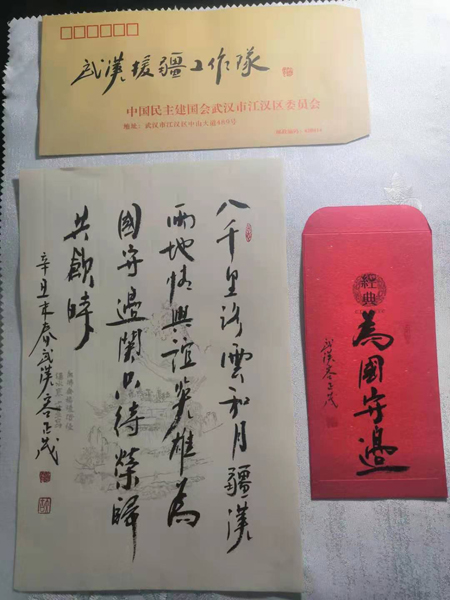 武漢援疆工作隊
中国民主建国会武汉市江汉区委员会
地址：武汉市江汉区中山大道
八千里路雲和月疆漢
兩地情與誼英雄為
國守邊關只待榮歸
共飲時
辛丑末春武漢
經典
為國守邊
武漢